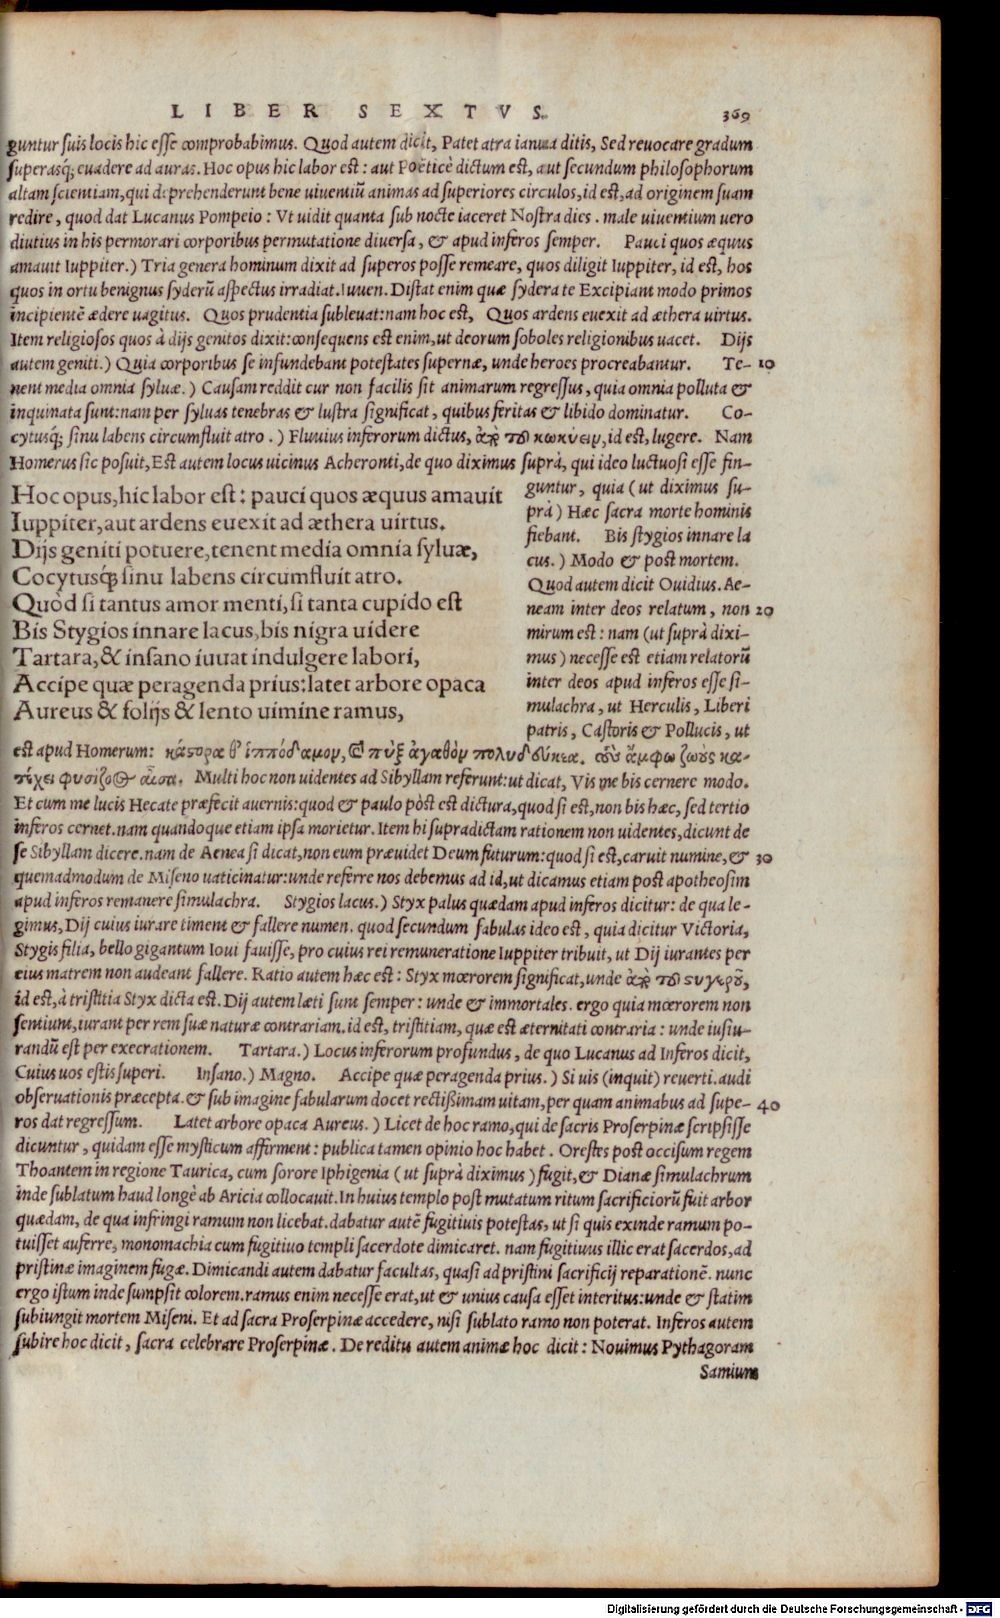 LIBER SEXTVS. 369
guntur suis locis hic esse comprobabimus. Quod autem dicit, Patet atra ianua ditis, Sed reuocare gradum
superasq́; euadere ad auras. Hoc opus hic labor est: aut Poëticè dictum est, aut secundum philosophorum
altam scientiam, qui deprehenderunt bene uiuentiū animas ad superiores circulos, id est, ad originem suam
redire, quod dat Lucanus Pompeio: Vt uidit quanta sub nocte iaceret Nostra dies. male uiuentium uero
diutius in his permorari corporibus permutatione diuersa, & apud inferos semper. Pauci quos æquus
amauit Iuppiter.) Tria genera hominum dixit ad superos posse remeare, quos diligit Iuppiter, id est, hos
quos in ortu benignus syderū aspectus irradiat. Iuuen. Distat enim quæ sydera te Excipiant modo primos
incipientē ædere uagitus. Quos prudentia subleuat: nam hoc est, Quos ardens euexit ad æthera uirtus.
Item religiosos quos à dijs genitos dixit: consequens est enim, ut deorum soboles religionibus uacet. Dijs
autem geniti.) Quia corporibus se infundebant potestates supernæ, unde heroes procreabantur. Te- 10
nent media omnia syluæ.) Causam reddit cur non facilis sit animarum regressus, quia omnia polluta &
inquinata sunt: nam per syluas tenebras & lustra significat, quibus feritas & libido dominatur. Co-
cytusq́; sinu labens circumfluit atro.) Fluuius inferorum dictus, ἀπὸ τοῦ κωκύειν, id est, lugere. Nam
Homerus sic posuit, Est autem locus uicinus Acheronti, de quo diximus suprà, qui ideo luctuosi esse fin-
Hoc opus, hic labor est: pauci quos æquus amauit
Iuppiter, aut ardens euexit ad æthera uirtus.
Dijs geniti potuere, tenent media omnia syluæ,
Cocytusq́; sinu labens circumfluit atro.
Quòd si tantus amor menti, si tanta cupido est
Bis Stygios innare lacus, bis nigra uidere
Tartara, & insano iuuat indulgere labori,
Accipe quæ peragenda prius: latet arbore opaca
Aureus & folijs & lento uimine ramus,
guntur, quia (ut diximus su-
prà) Hæc sacra morte hominis
fiebant. Bis stygios innare la
cus.) Modo & post mortem.
Quod autem dicit Ouidius. Ae-
neam inter deos relatum, non 20
mirum est: nam (ut suprà dixi-
mus) necesse est etiam relatorū
inter deos apud inferos esse si-
mulachra, ut Herculis, Liberi
patris, Castoris & Pollucis, ut
est apud Homerum: κάστορα θ' ἱππόδαμον, καὶ πὺξ ἀγαθὸν πολυδεύκεα. τοὺς ἄμφω ζωοὺς κα-
τέχει φυσίζοος αἶσα. Multi hoc non uidentes ad Sibyllam referunt: ut dicat, Vis me bis cernere modo.
Et cum me lucis Hecate præfecit auernis: quod & paulo pòst est dictura, quod si est, non bis hæc, sed tertio
inferos cernet. nam quandoque etiam ipsa morietur. Item hi supradictam rationem non uidentes, dicunt de
se Sibyllam dicere. nam de Aenea si dicat, non eum præuidet Deum futurum: quod si est, caruit numine, & 30
quemadmodum de Miseno uaticinatur: unde referre nos debemus ad id, ut dicamus etiam post apotheosim
apud inferos remanere simulachra. Stygios lacus.) Styx palus quædam apud inferos dicitur: de qua le-
gimus, Dij cuius iurare timent & fallere numen. quod secundum fabulas ideo est, quia dicitur Victoria,
Stygis filia, bello gigantum Ioui fauisse, pro cuius rei remuneratione Iuppiter tribuit, ut Dij iurantes per
eius matrem non audeant fallere. Ratio autem hæc est: Styx mœrorem significat, unde ἀπὸ τοῦ στυγεροῦ,
id est, à tristitia Styx dicta est. Dij autem læti sunt semper: unde & immortales. ergo quia mœrorem non
sentiunt, iurant per rem suæ naturæ contrariam. id est, tristitiam, quæ est æternitati contraria: unde iusiu-
randū est per execrationem. Tartara.) Locus inferorum profundus, de quo Lucanus ad Inferos dicit,
Cuius uos estis superi. Insano.) Magno. Accipe quæ peragenda prius.) Si uis (inquit) reuerti. audi
obseruationis præcepta. & sub imagine fabularum docet rectißimam uitam, per quam animabus ad supe- 40
ros dat regressum. Latet arbore opaca Aureus.) Licet de hoc ramo, qui de sacris Proserpinæ scripsisse
dicuntur, quidam esse mysticum affirment: publica tamen opinio hoc habet. Orestes post occisum regem
Thoantem in regione Taurica, cum sorore Iphigenia (ut suprà diximus) fugit, & Dianæ simulachrum
inde sublatum haud longè ab Aricia collocauit. In huius templo post mutatum ritum sacrificiorū fuit arbor
quædam, de qua infringi ramum non licebat. dabatur autē fugitiuis potestas, ut si quis exinde ramum po-
tuisset auferre, monomachia cum fugitiuo templi sacerdote dimicaret. nam fugitiuus illic erat sacerdos, ad
pristinæ imaginem fugæ. Dimicandi autem dabatur facultas, quasi ad pristini sacrificij reparationē. nunc
ergo istum inde sumpsit colorem. ramus enim necesse erat, ut & unius causa esset interitus: unde & statim
subiungit mortem Miseni. Et ad sacra Proserpinæ accedere, nisi sublato ramo non poterat. Inferos autem
subire hoc dicit, sacra celebrare Proserpinæ. De reditu autem animæ hoc dicit: Nouimus Pythagoram
Samium
Digitalisierung gefördert durch die Deutsche Forschungsgemeinschaft - DFG